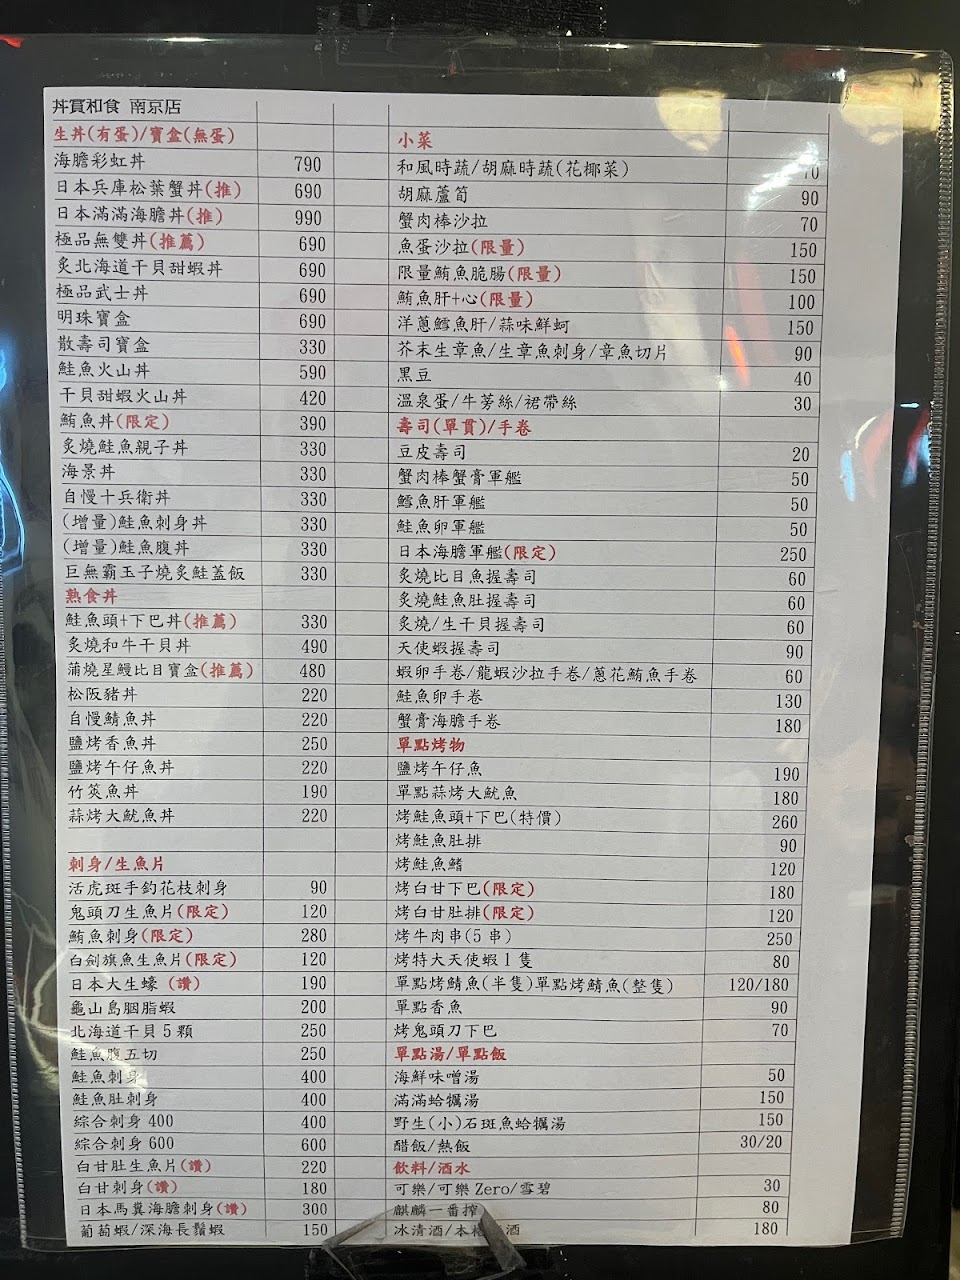 丼賣和食 南京店
生丼(有蛋)/寶盒(無蛋)
海膽彩虹丼 790
日本兵庫松葉蟹丼(推) 690
日本滿滿海膽丼(推) 990
極品無雙丼(推薦) 690
炙北海道干貝甜蝦丼 690
極品武士丼 690
明珠寶盒 690
散壽司寶盒 330
鮭魚火山丼 590
干貝甜蝦火山丼 420
鮪魚丼(限定) 390
炙燒鮭魚親子丼 330
海景丼 330
自慢十兵衛丼 330
(增量)鮭魚刺身丼 330
(增量)鮭魚腹丼 330
巨無霸玉子燒炙鮭蓋飯 330
熟食丼
鮭魚頭+下巴丼(推薦) 330
炙燒和牛干貝丼 490
蒲燒星鰻比目寶盒(推薦) 480
松阪豬丼 220
自慢鯖魚丼 220
鹽烤香魚丼 250
鹽烤午仔魚丼 220
竹筴魚丼 190
蒜烤大魷魚丼 220
刺身/生魚片
活虎斑手釣花枝刺身 90
鬼頭刀生魚片(限定) 120
鮪魚刺身(限定) 280
白劍旗魚生魚片(限定) 120
日本大生蠔 (讚) 190
龜山島胭脂蝦 200
北海道干貝 5 顆 250
鮭魚腹五切 250
鮭魚刺身 400
鮭魚肚刺身 400
綜合刺身 400 400
綜合刺身 600 600
白甘肚生魚片(讚) 220
白甘刺身(讚) 180
日本馬糞海膽刺身(讚) 300
葡萄蝦/深海長鬚蝦 150
小菜
和風時蔬/胡麻時蔬(花椰菜) 70
胡麻蘆筍 90
蟹肉棒沙拉 70
魚蛋沙拉(限量) 150
限量鮪魚脆腸(限量) 150
鮪魚肝+心(限量) 100
洋蔥鱈魚肝/蒜味鮮蚵 150
芥末生章魚/生章魚刺身/章魚切片 90
黑豆 40
溫泉蛋/牛蒡絲/裙帶絲 30
壽司(單貫)/手卷
豆皮壽司 20
蟹肉棒蟹膏軍艦 50
鱈魚肝軍艦 50
鮭魚卵軍艦 50
日本海膽軍艦(限定) 250
炙燒比目魚握壽司 60
炙燒鮭魚肚握壽司 60
炙燒/生干貝握壽司 60
天使蝦握壽司 90
蝦卵手卷/龍蝦沙拉手卷/蔥花鮪魚手卷 60
鮭魚卵手卷 130
蟹膏海膽手卷 180
單點烤物
鹽烤午仔魚 190
單點蒜烤大魷魚 180
烤鮭魚頭+下巴(特價) 260
烤鮭魚肚排 90
烤鮭魚鰭 120
烤白甘下巴(限定) 180
烤白甘肚排(限定) 120
烤牛肉串(5 串) 250
烤特大天使蝦 1 隻 80
單點烤鯖魚(半隻)單點烤鯖魚(整隻) 120/180
單點香魚 90
烤鬼頭刀下巴 70
單點湯/單點飯
海鮮味噌湯 50
滿滿蛤蠣湯 150
野生(小)石斑魚蛤蠣湯 150
醋飯/熱飯 30/20
飲料/酒水
可樂/可樂 Zero/雪碧 30
麒麟一番搾 80
冰清酒/本 酒 180